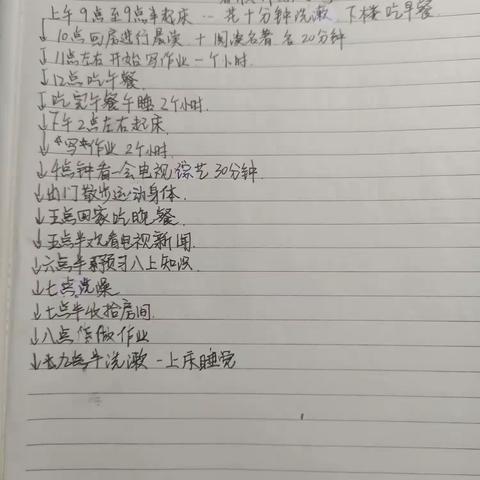 上午9点至9点半起床 … 花十分钟洗漱，下楼吃早餐.
↓10点回屋进行晨读 + 阅读名著 各20分钟
↓11点左右开始写作业一个小时.
↓12点吃午餐.
↓吃完午餐午睡2个小时.
↓下午2点左右起床.
↓写作业 2个小时.
↓4点钟看一会电视综艺30分钟.
↓出门散步运动身体.
↓五点回家吃晚餐.
↓五点半观看电视新闻.
↓六点半预习八上知识.
↓七点洗澡
↓七点半收拾房间.
↓八点 做作业
↓九点半洗漱 - 上床睡觉